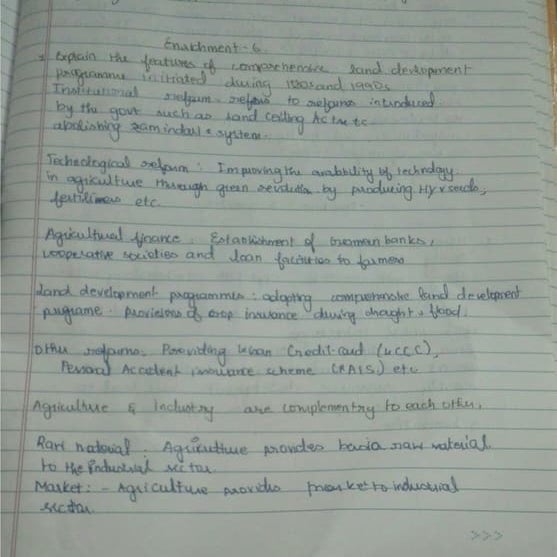 Enrichment - 6
Explain the features of comprehensive land development
programme initiated during 1980s and 1990s
Institutional reform - refers to reforms introduced
by the govt such as land ceiling Act etc
abolishing zamindari system.
Technological reform : Improving the availability of technology
in agriculture through green revolution by producing HYV seeds,
fertilizers etc
Agricultural finance : Establishment of Grameen banks,
cooperative societies and loan facilities to farmers
Land development programmes : adopting comprehensive land development
programe . provisions of crop insurance during drought + flood.
Other reforms. Providing Kisan Credit card (KCC),
Personal Accident insurance scheme (PAIS) etc
Agriculture & Industry are complementry to each other.
Raw material . Agriculture provides basic raw material
to the Industrial sector
Market : - Agriculture provides market to industrial
sector.
>>>